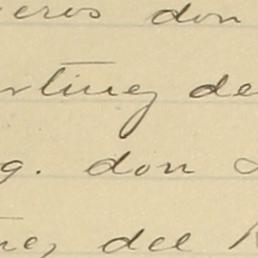 eros don
rtinez de
g. don
nez del